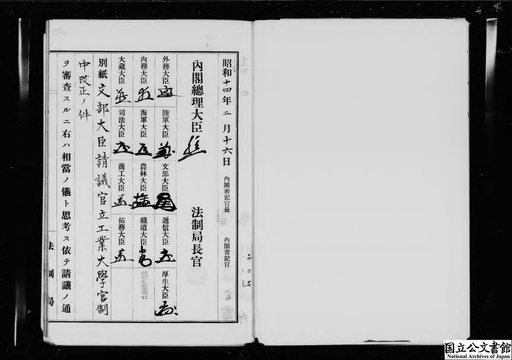 昭和十四年二月十六日
內閣書記官長
內閣書記官
內閣總理大臣
法制局長官
外務大臣
陸軍大臣
文部大臣
遞信大臣
厚生大臣
內務大臣
海軍大臣
農林大臣
鐵道大臣
大藏大臣
司法大臣
商工大臣
拓務大臣
別紙文部大臣請議官立工業大學官制
中改正ノ件
ヲ審査スルニ右ハ相當ノ儀ト思考ス依テ請議ノ通
法制局
国立公文書館
National Archives of Japan